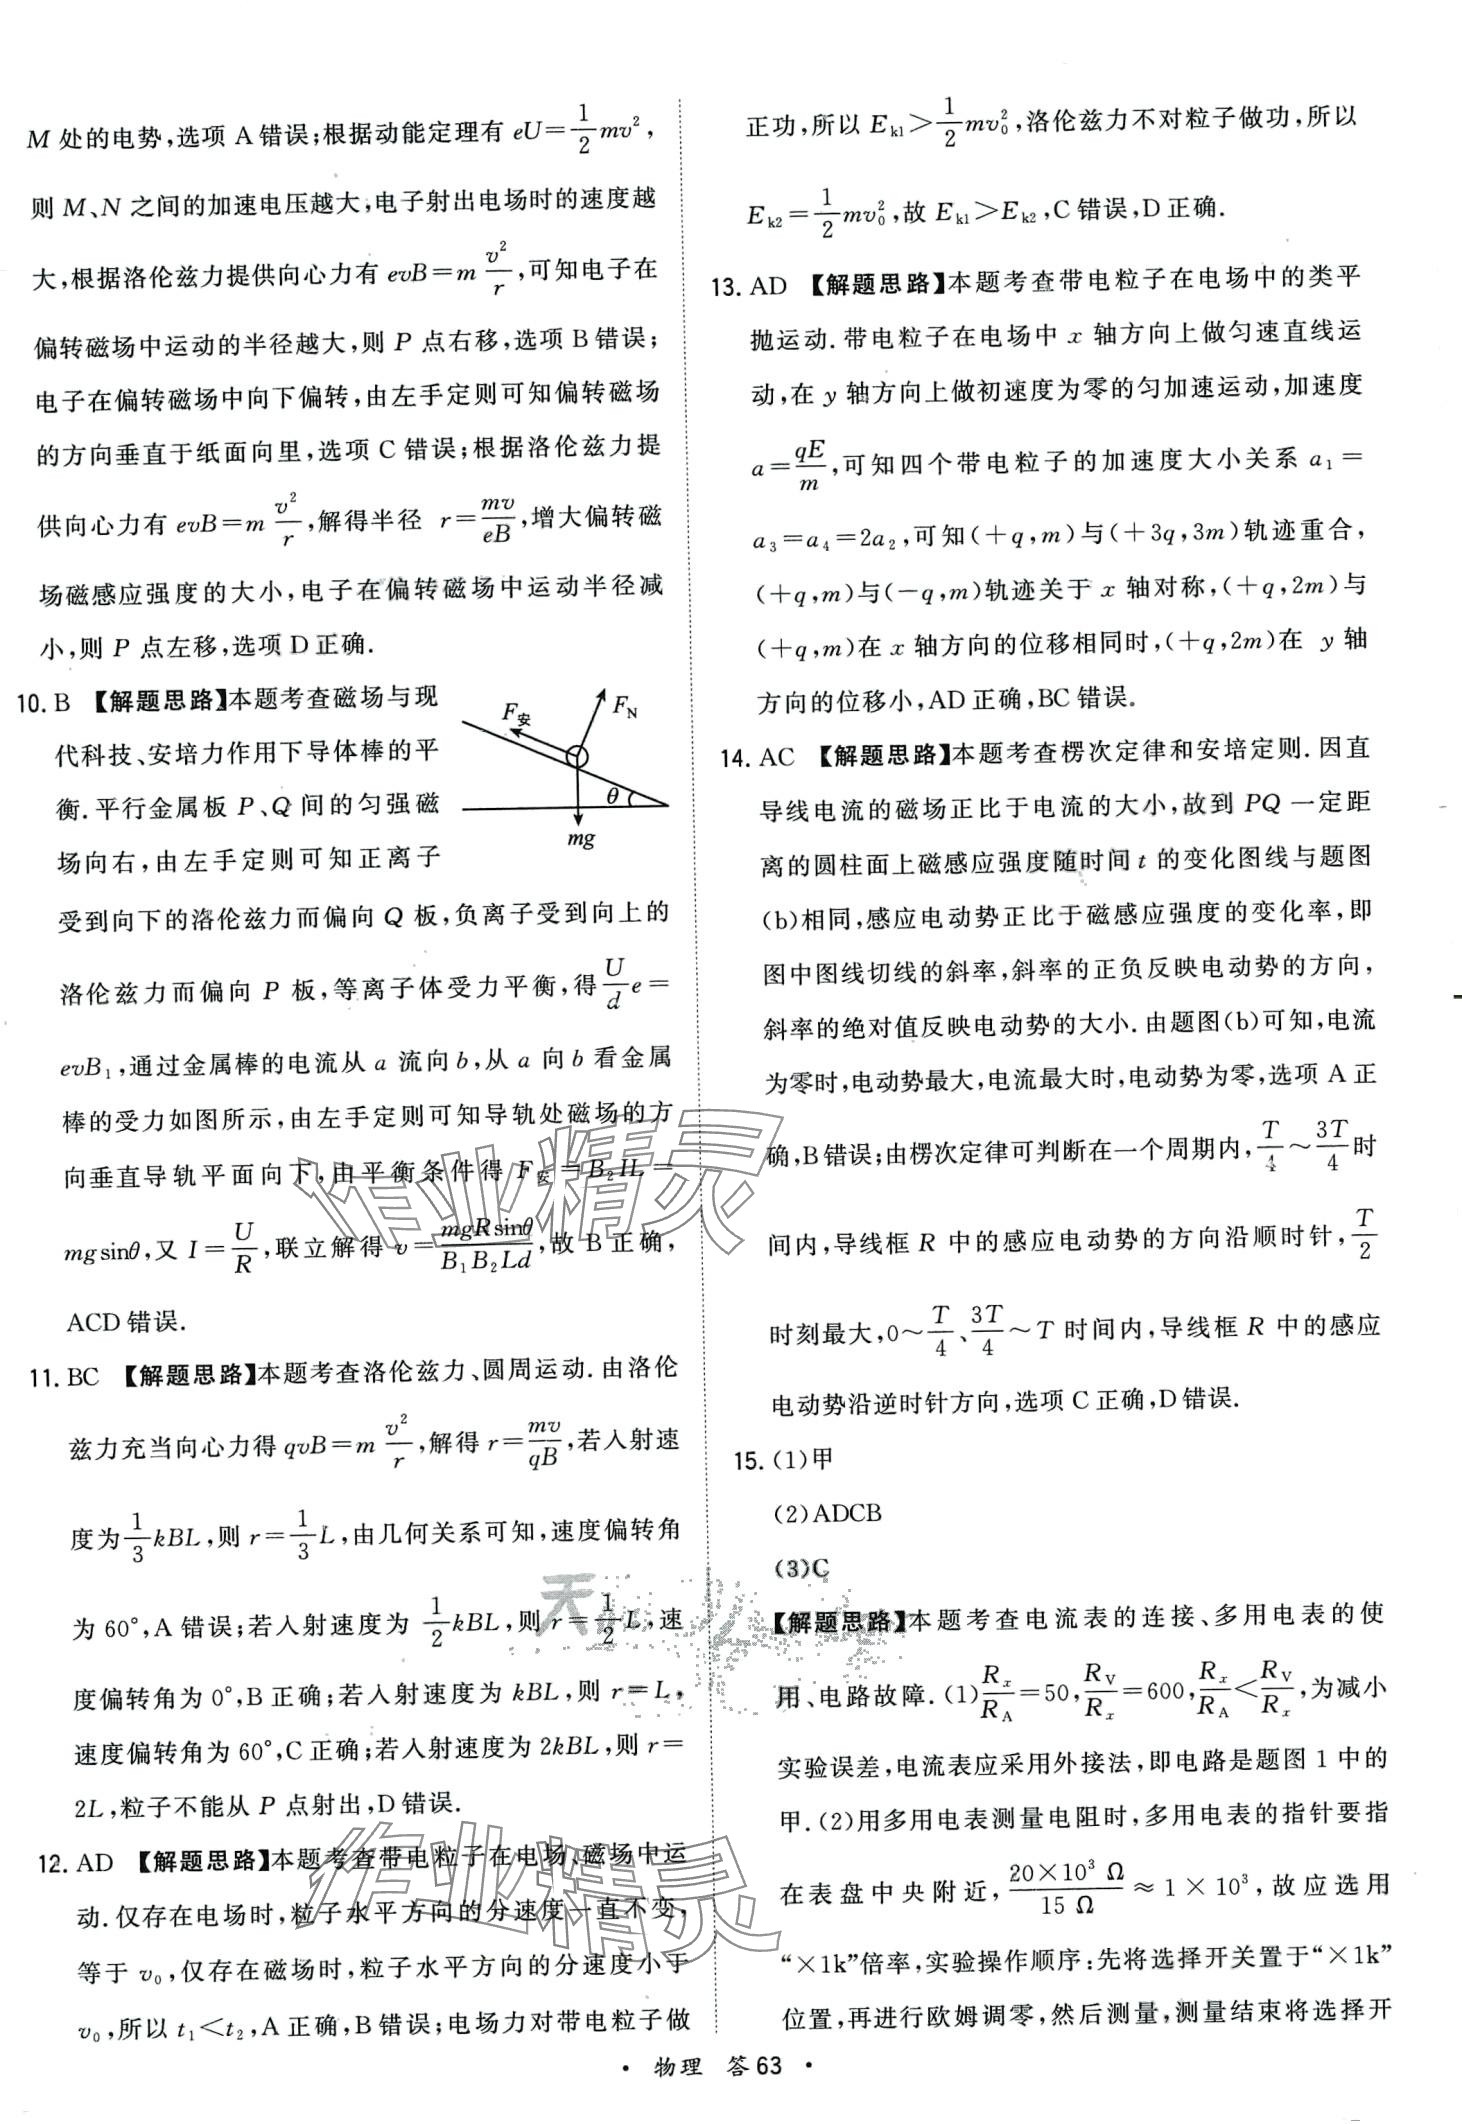 M 处的电势,选项 A 错误;根据动能定理有 eU=\frac{1}{2}mv²,
则 M、N 之间的加速电压越大,电子射出电场时的速度越
大,根据洛伦兹力提供向心力有 evB=m\frac{v²}{r},可知电子在
偏转磁场中运动的半径越大,则 P 点右移,选项 B 错误;
电子在偏转磁场中向下偏转,由左手定则可知偏转磁场
的方向垂直于纸面向里,选项 C 错误;根据洛伦兹力提
供向心力有 evB=m\frac{v²}{r},解得半径 r=\frac{mv}{eB},增大偏转磁
场磁感应强度的大小,电子在偏转磁场中运动半径减
小,则 P 点左移,选项 D 正确.
10. B 【解题思路】本题考查磁场与现
代科技、安培力作用下导体棒的平
衡.平行金属板 P、Q 间的匀强磁
场向右,由左手定则可知正离子
F安
F_N
θ
mg
受到向下的洛伦兹力而偏向 Q 板,负离子受到向上的
洛伦兹力而偏向 P 板,等离子体受力平衡,得\frac{U}{d}e=
evB₁,通过金属棒的电流从 a 流向 b,从 a 向 b 看金属
棒的受力如图所示,由左手定则可知导轨处磁场的方
向垂直导轨平面向下,由平衡条件得 F安=B₂IL=
mgsinθ,又 I=\frac{U}{R},联立解得 v=\frac{mgRsinθ}{B₁B₂Ld},故 B 正确,
ACD 错误.
11. BC 【解题思路】本题考查洛伦兹力、圆周运动.由洛伦
兹力充当向心力得 qvB=m\frac{v²}{r},解得 r=\frac{mv}{qB},若入射速
度为\frac{1}{3}kBL,则 r=\frac{1}{3}L,由几何关系可知,速度偏转角
为 60°,A 错误;若入射速度为\frac{1}{2}kBL,则 r=\frac{1}{2}L,速
度偏转角为 0°,B 正确;若入射速度为 kBL,则 r=L,
速度偏转角为 60°,C 正确;若入射速度为 2kBL,则 r=
2L,粒子不能从 P 点射出,D 错误.
12. AD 【解题思路】本题考查带电粒子在电场、磁场中运
动.仅存在电场时,粒子水平方向的分速度一直不变,
等于 v₀,仅存在磁场时,粒子水平方向的分速度小于
v₀,所以 t₁<t₂,A 正确,B 错误;电场力对带电粒子做
正功,所以 E_{k1}>\frac{1}{2}mv₀²,洛伦兹力不对粒子做功,所以
E_{k2}=\frac{1}{2}mv₀²,故 E_{k1}>E_{k2},C 错误,D 正确.
13. AD 【解题思路】本题考查带电粒子在电场中的类平
抛运动.带电粒子在电场中 x 轴方向上做匀速直线运
动,在 y 轴方向上做初速度为零的匀加速运动,加速度
a=\frac{qE}{m},可知四个带电粒子的加速度大小关系 a₁=
a₃=a₄=2a₂,可知(+q,m)与(+3q,3m)轨迹重合,
(+q,m)与(-q,m)轨迹关于 x 轴对称,(+q,2m)与
(+q,m)在 x 轴方向的位移相同时,(+q,2m)在 y 轴
方向的位移小,AD 正确,BC 错误.
14. AC 【解题思路】本题考查楞次定律和安培定则.因直
导线电流的磁场正比于电流的大小,故到 PQ 一定距
离的圆柱面上磁感应强度随时间 t 的变化图线与题图
(b)相同,感应电动势正比于磁感应强度的变化率,即
图中图线切线的斜率,斜率的正负反映电动势的方向,
斜率的绝对值反映电动势的大小.由题图(b)可知,电流
为零时,电动势最大,电流最大时,电动势为零,选项 A 正
确,B 错误;由楞次定律可判断在一个周期内,\frac{T}{4}~\frac{3T}{4}时
间内,导线框 R 中的感应电动势的方向沿顺时针,\frac{T}{2}
时刻最大,0~\frac{T}{4}、\frac{3T}{4}~T 时间内,导线框 R 中的感应
电动势沿逆时针方向,选项 C 正确,D 错误.
15. (1)甲
(2)ADCB
(3)C
【解题思路】本题考查电流表的连接、多用电表的使
用、电路故障.(1)\frac{R_x}{R_A}=50,\frac{R_V}{R_x}=600,\frac{R_x}{R_A}<\frac{R_V}{R_x},为减小
实验误差,电流表应采用外接法,即电路是题图 1 中的
甲.(2)用多用电表测量电阻时,多用电表的指针要指
在表盘中央附近,\frac{20×10³ Ω}{15 Ω}≈1×10³,故应选用
“×1k”倍率,实验操作顺序:先将选择开关置于“×1k”
位置,再进行欧姆调零,然后测量,测量结束将选择开
• 物理 答 63 •
作业精灵
作业精灵